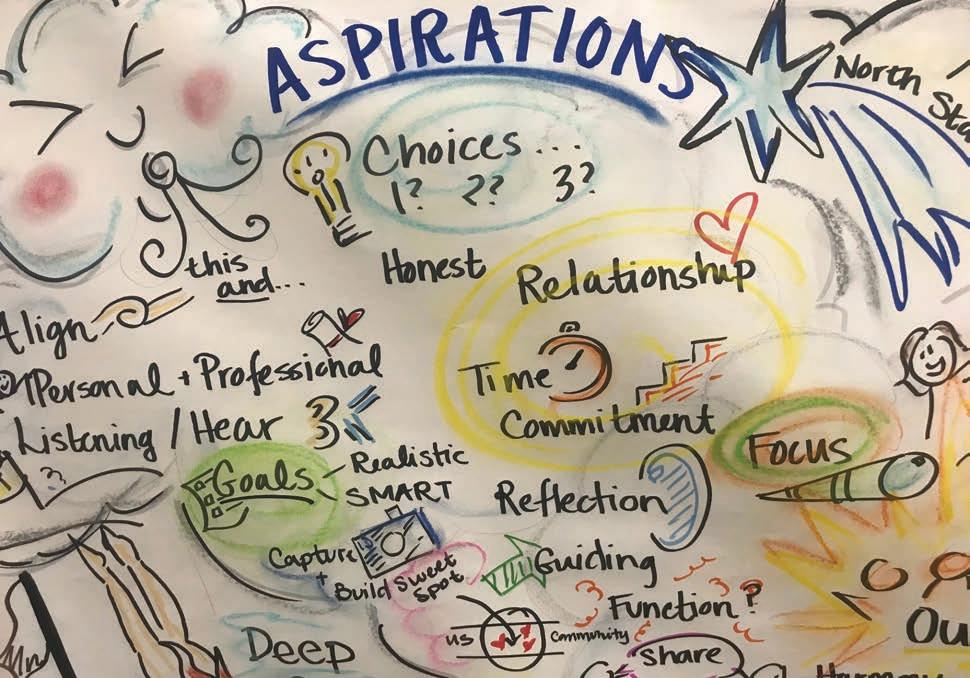 ASPIRATIONS
North Sta
Choices....
1? 2? 3?
this
and...
Honest
Relationship
Align
Personal + Professional
Time
Commitment
Listening / Hear
Focus
Goals
Realistic
SMART
Reflection
Capture
+
Build Sweet
Spot
Guiding
Function?
us
Community
Deep
share
Ou